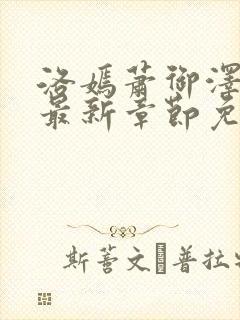 洛嫣萧御泽
最新章节免
斯蒈文 普拉出